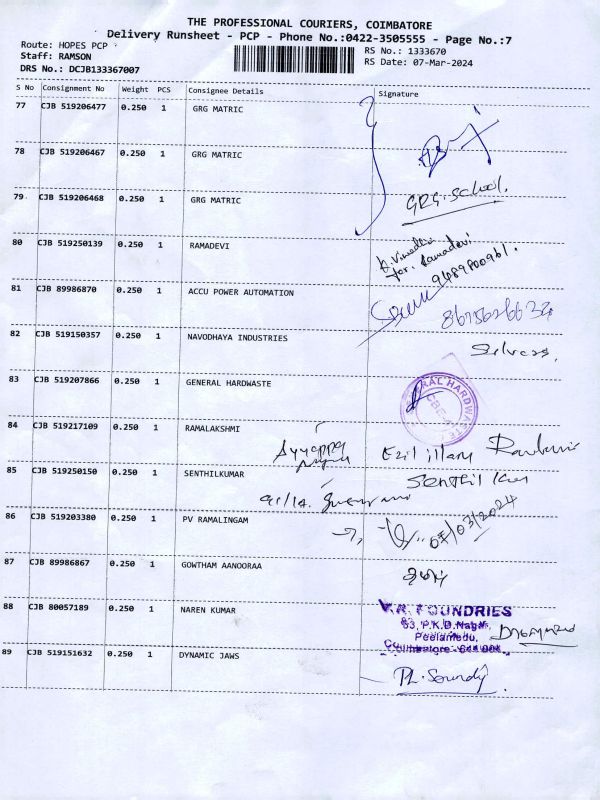 THE PROFESSIONAL COURIERS, COIMBATORE
Delivery Runsheet - PCP - Phone No.:0422-3505555 - Page No.:7
Route: HOPES PCP RS No.: 1333670
Staff: RAMSON RS Date: 07-Mar-2024
DRS No.: DCJB133367007
S No Consignment No Weight PCS Consignee Details Signature
77 CJB 519206477 0.250 1 GRG MATRIC
78 CJB 519206467 0.250 1 GRG MATRIC
79 CJB 519206468 0.250 1 GRG MATRIC
GRG. School.
80 CJB 519250139 0.250 1 RAMADEVI
for. Ramadevi
9489800961.
81 CJB 89986870 0.250 1 ACCU POWER AUTOMATION
82 CJB 519150357 0.250 1 NAVODHAYA INDUSTRIES
83 CJB 519207866 0.250 1 GENERAL HARDWASTE
84 CJB 519217109 0.250 1 RAMALAKSHMI
Ayyappa
85 CJB 519250150 0.250 1 SENTHILKUMAR
86 CJB 519203380 0.250 1 PV RAMALINGAM
07/03/2024
87 CJB 89986867 0.250 1 GOWTHAM AANOORAA
88 CJB 80057189 0.250 1 NAREN KUMAR
V.R. FOUNDRIES
53, P.K.D.Nagar,
Peelamedu,
Coimbatore - 641 004.
89 CJB 519151632 0.250 1 DYNAMIC JAWS